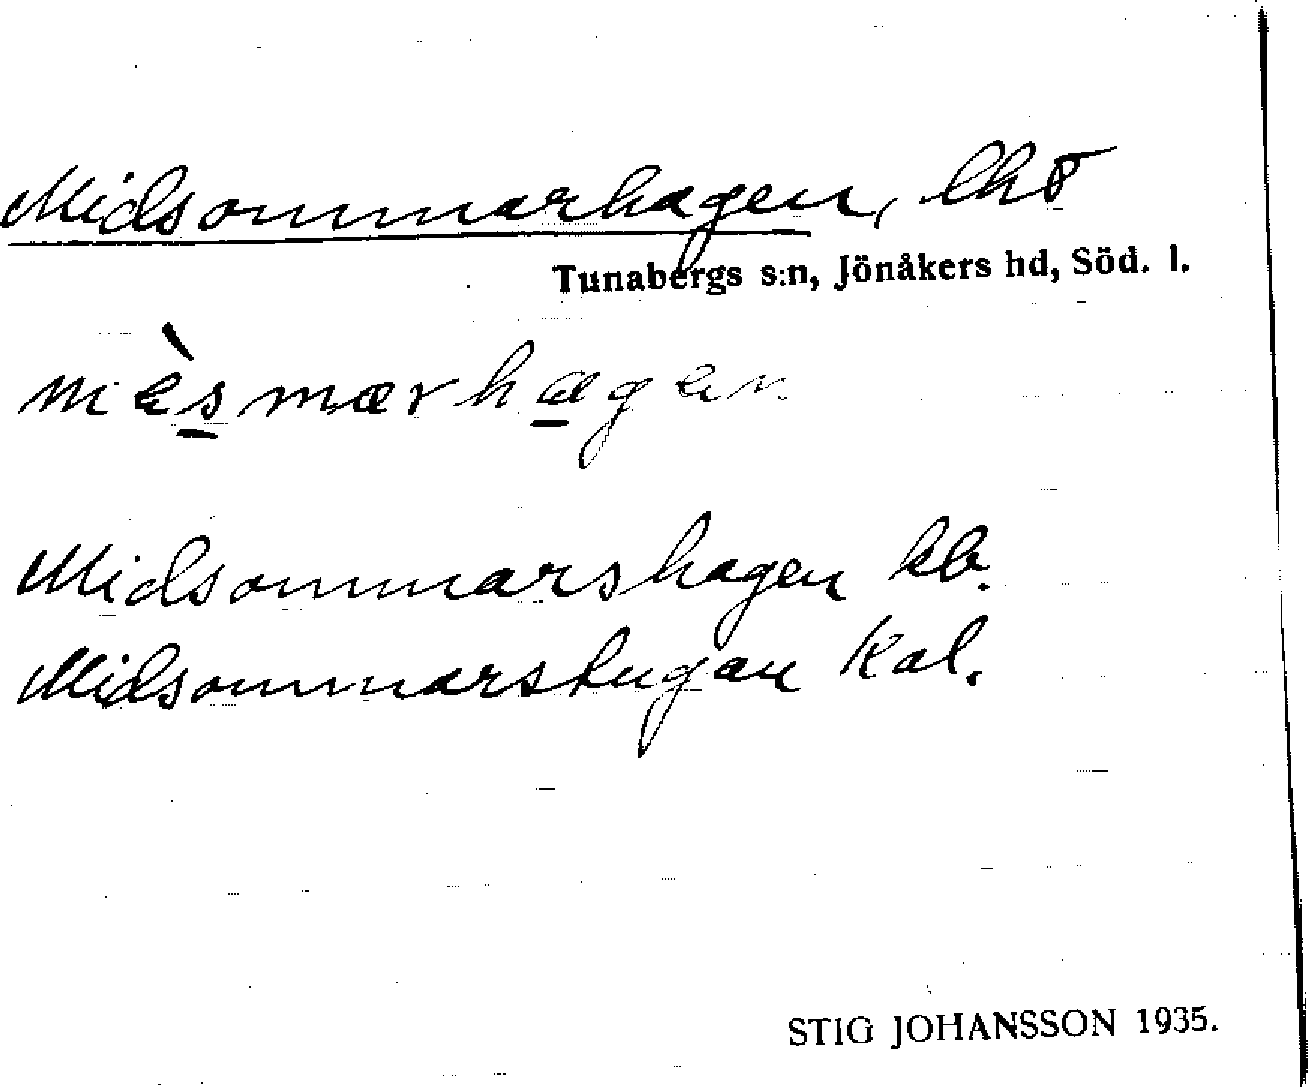 Midsommarhagen, lht
Tunabergs s:n, Jönåkers hd, Söd. l.
mèsmarhagen
Midsommarshagen kb.
Midsommarstugan Kal.
STIG JOHANSSON 1935.